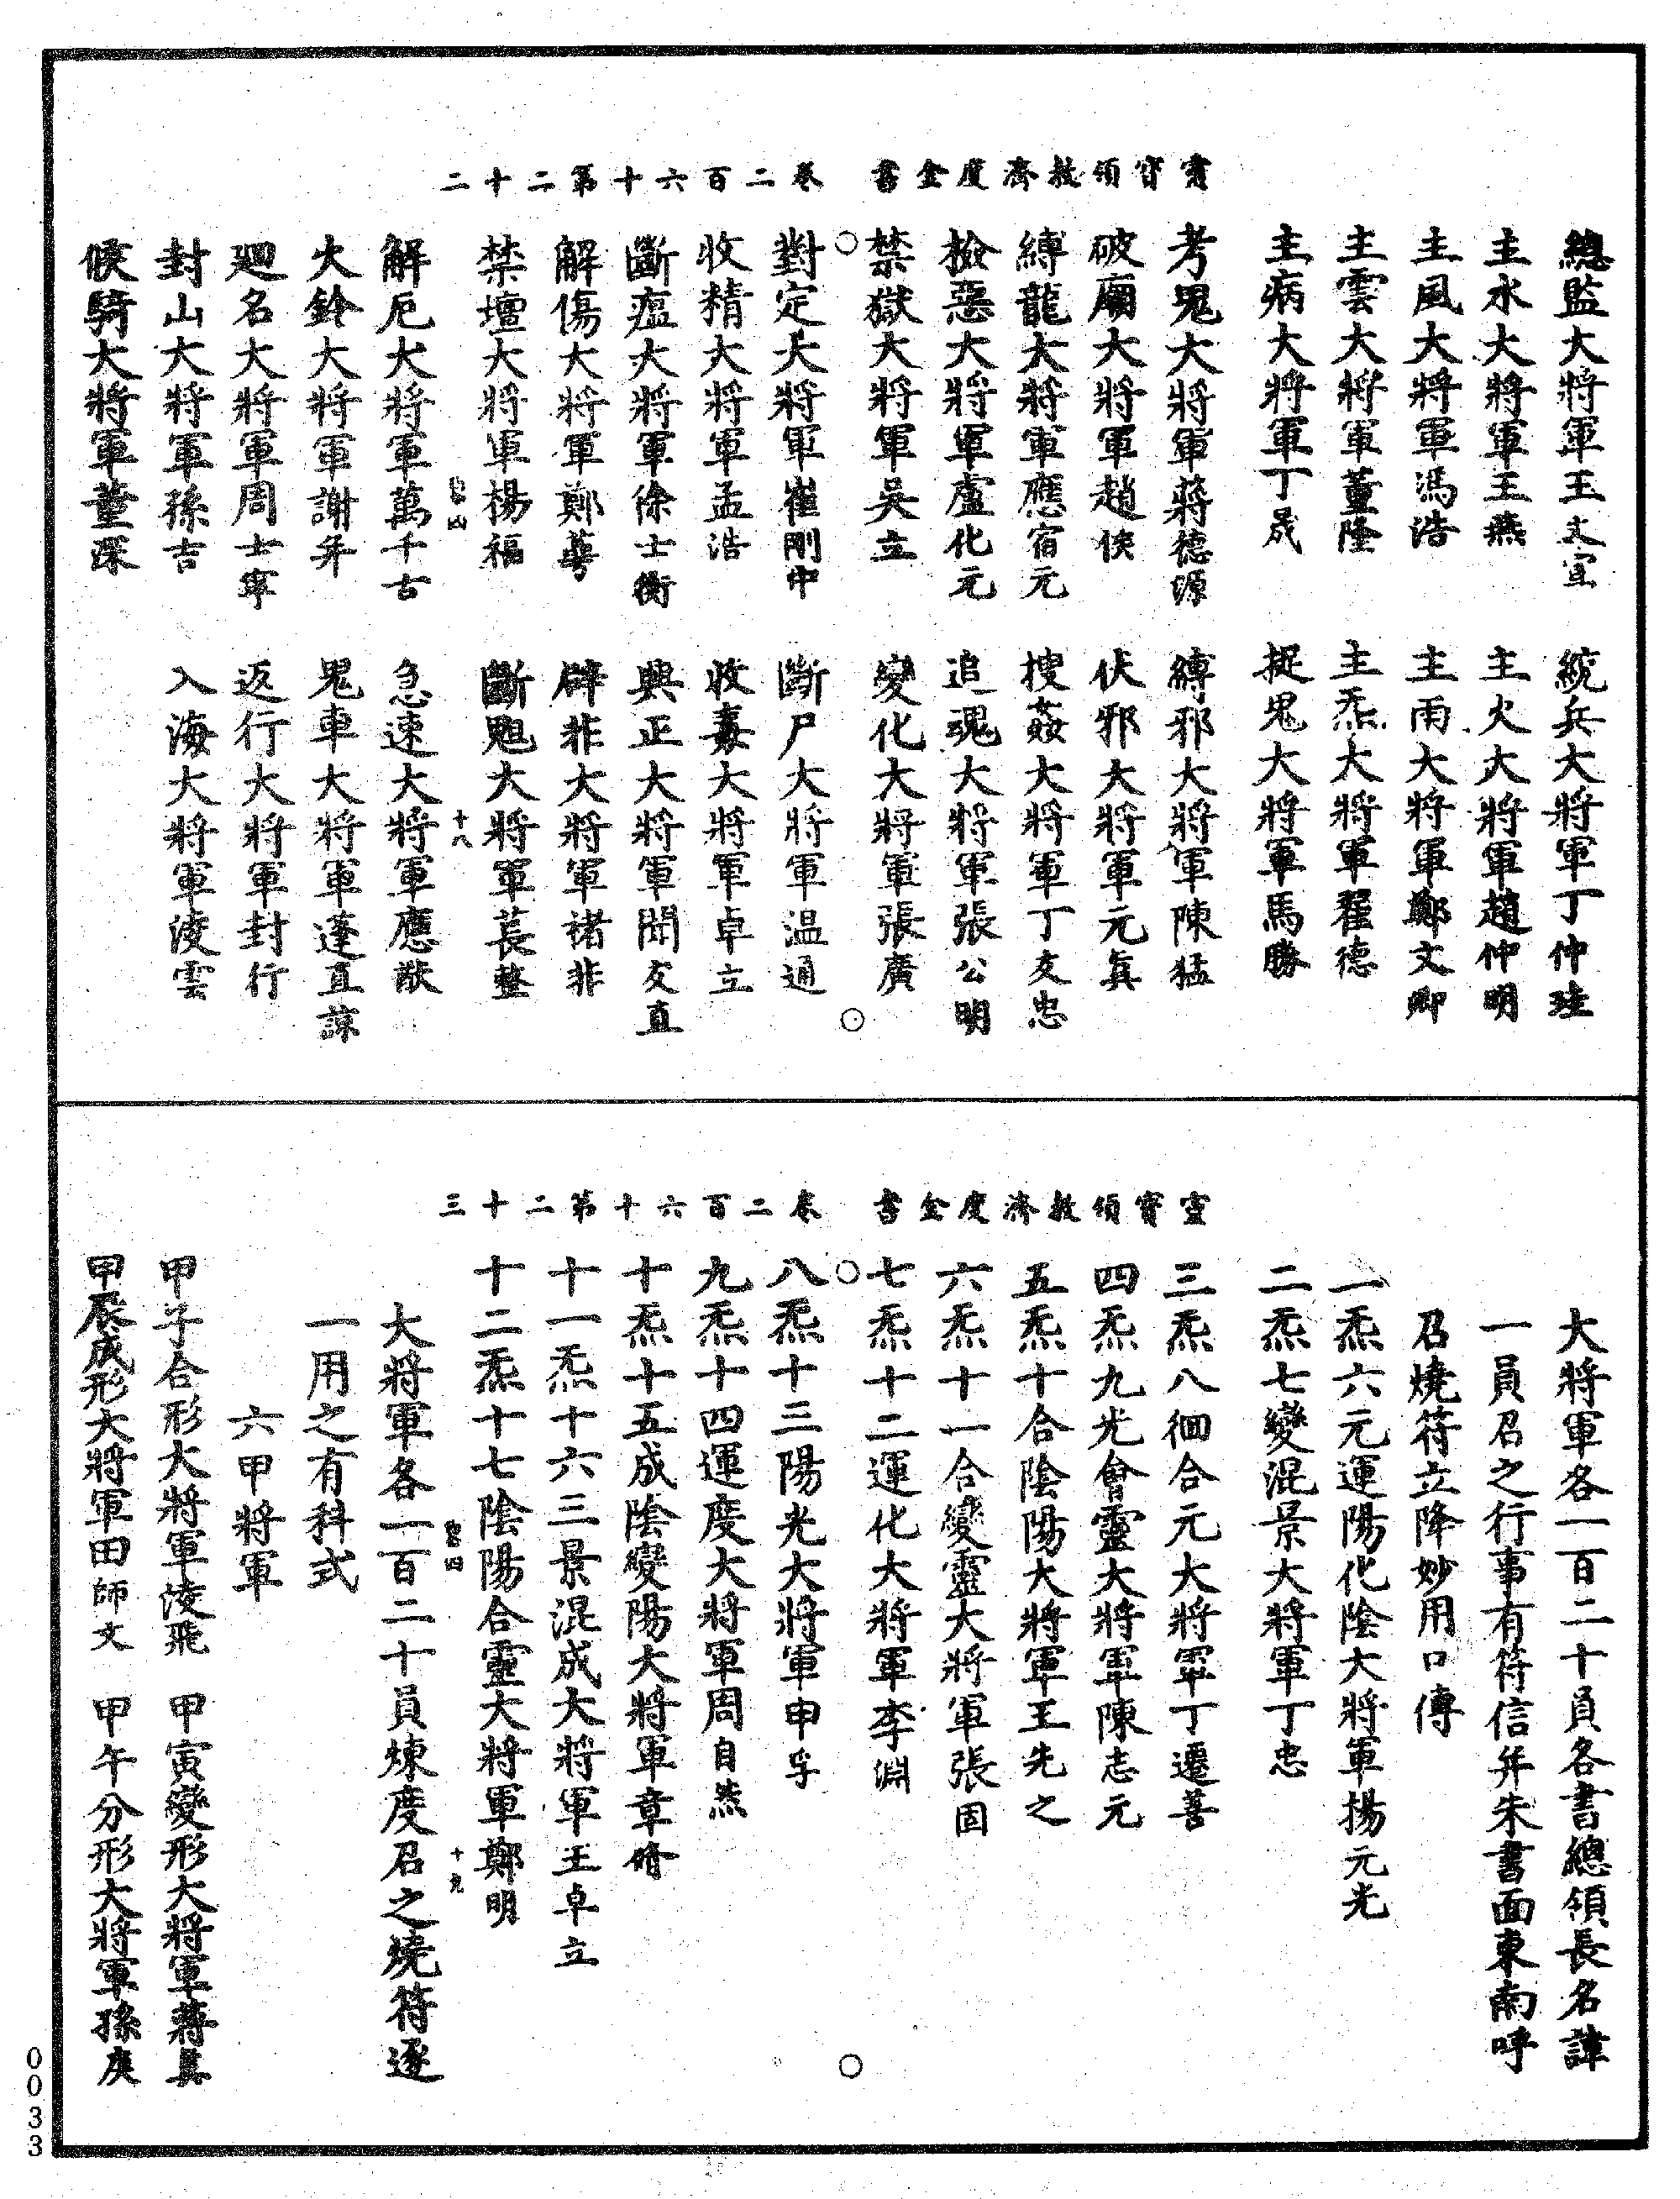 靈寶領教濟度金書　卷二百六十第二十二
總監大將軍王文宣　統兵大將軍丁仲珪
主水大將軍王燕　主火大將軍趙仲明
主風大將軍馮浩　主雨大將軍鄭文卿
主雲大將軍董隆　主炁大將軍翟德
主病大將軍丁晟　捉鬼大將軍馬勝
考鬼大將軍蔣德源　縛邪大將軍陳猛
破廟大將軍趙俠　伏邪大將軍元真
縛龍大將軍應宿元　搜姦大將軍丁文忠
撿惡大將軍盧化元　追魂大將軍張公明
禁獄大將軍吳立　變化大將軍張廣
對定大將軍崔剛中　斷尸大將軍温通
收精大將軍孟浩　收毒大將軍卓立
斷瘟大將軍徐士衡　興正大將軍聞友直
解傷大將軍鄭蕚　辟非大將軍褚非
禁壇大將軍楊福　斷魁大將軍萇整
十八
解厄大將軍萬千古　急速大將軍應猷
火鈴大將軍謝年　鬼車大將軍蓬直諒
廻名大將軍周士寧　返行大將軍封行
封山大將軍孫吉　入海大將軍淩雲
候騎大將軍董深
靈寶領教濟度金書　卷二百六十第二十三
大將軍各一百二十員各書總領長名諱
一員召之行事有符信并朱書面東南呼
召燒符立降妙用口傳
一炁六元運陽化陰大將軍揚元光
二炁七變混景大將軍丁忠
三炁八徊合元大將軍丁遷善
四炁九光會靈大將軍陳志元
五炁十合陰陽大將軍王先之
六炁十一合變靈大將軍張固
七炁十二運化大將軍李淵
八炁十三陽光大將軍申孚
九炁十四運度大將軍周自然
十炁十五成陰變陽大將軍章脩
十一炁十六三景混成大將軍王卓立
十二炁十七陰陽合靈大將軍鄭明
十九
大將軍各一百二十員煉度召之燒符逐
一用之有科式
六甲將軍
甲子合形大將軍淩飛　甲寅變形大將軍蔣真
甲辰成形大將軍田師文　甲午分形大將軍孫庚
0033